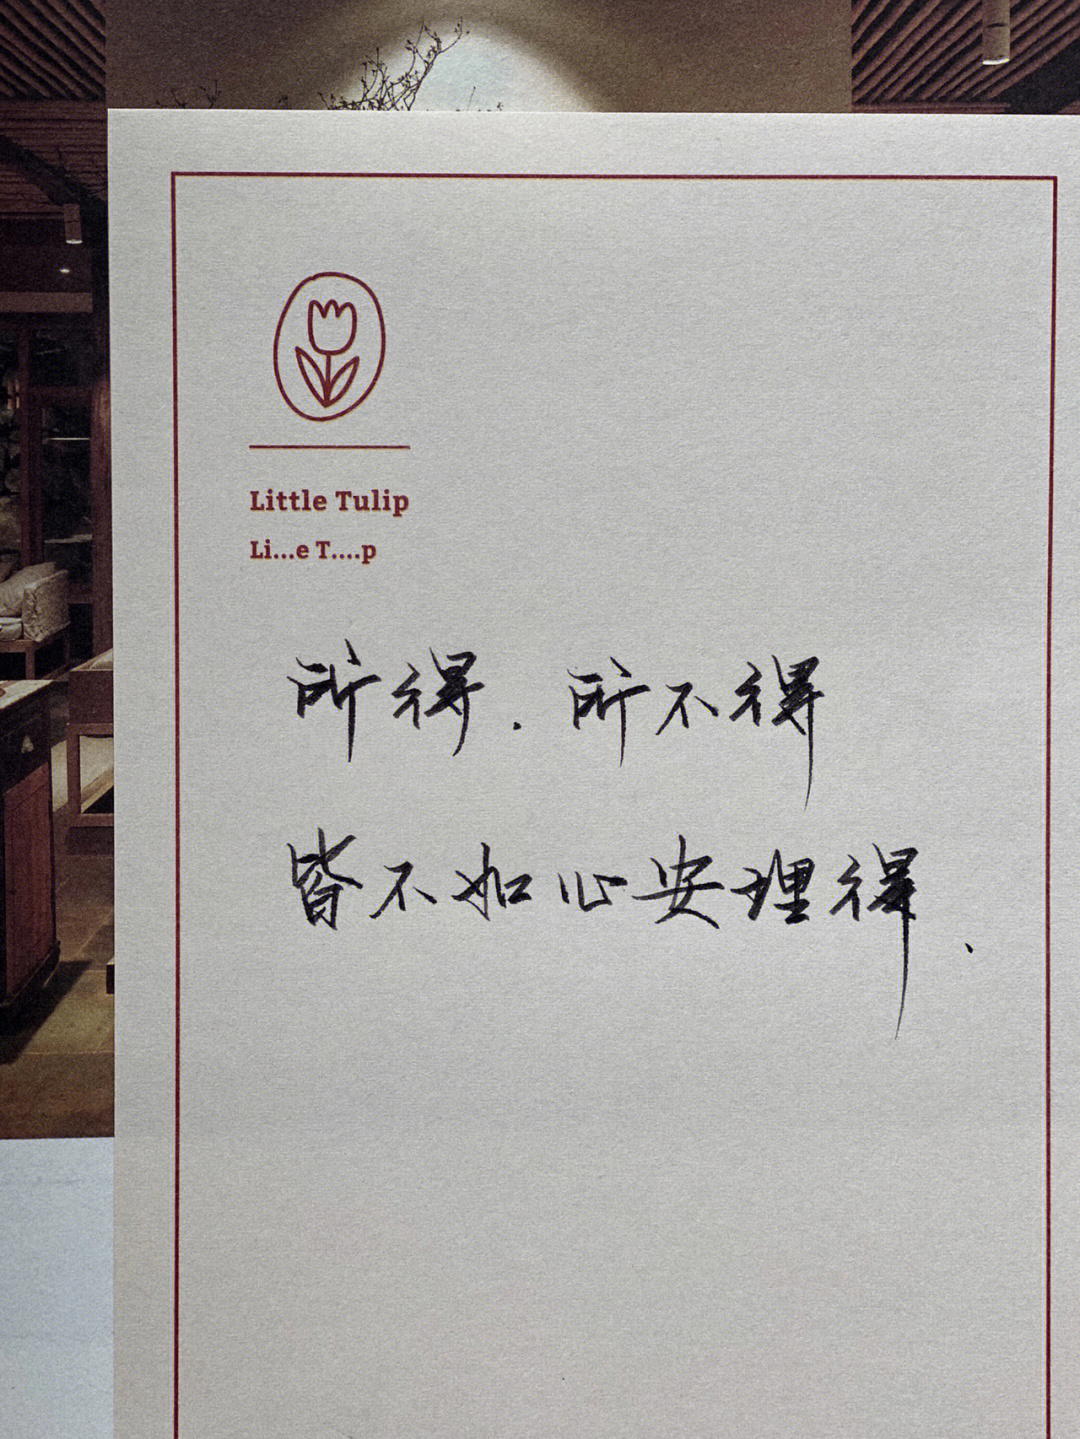 Little Tulip
Li...e T....p
所得.所不得
皆不如心安理得.